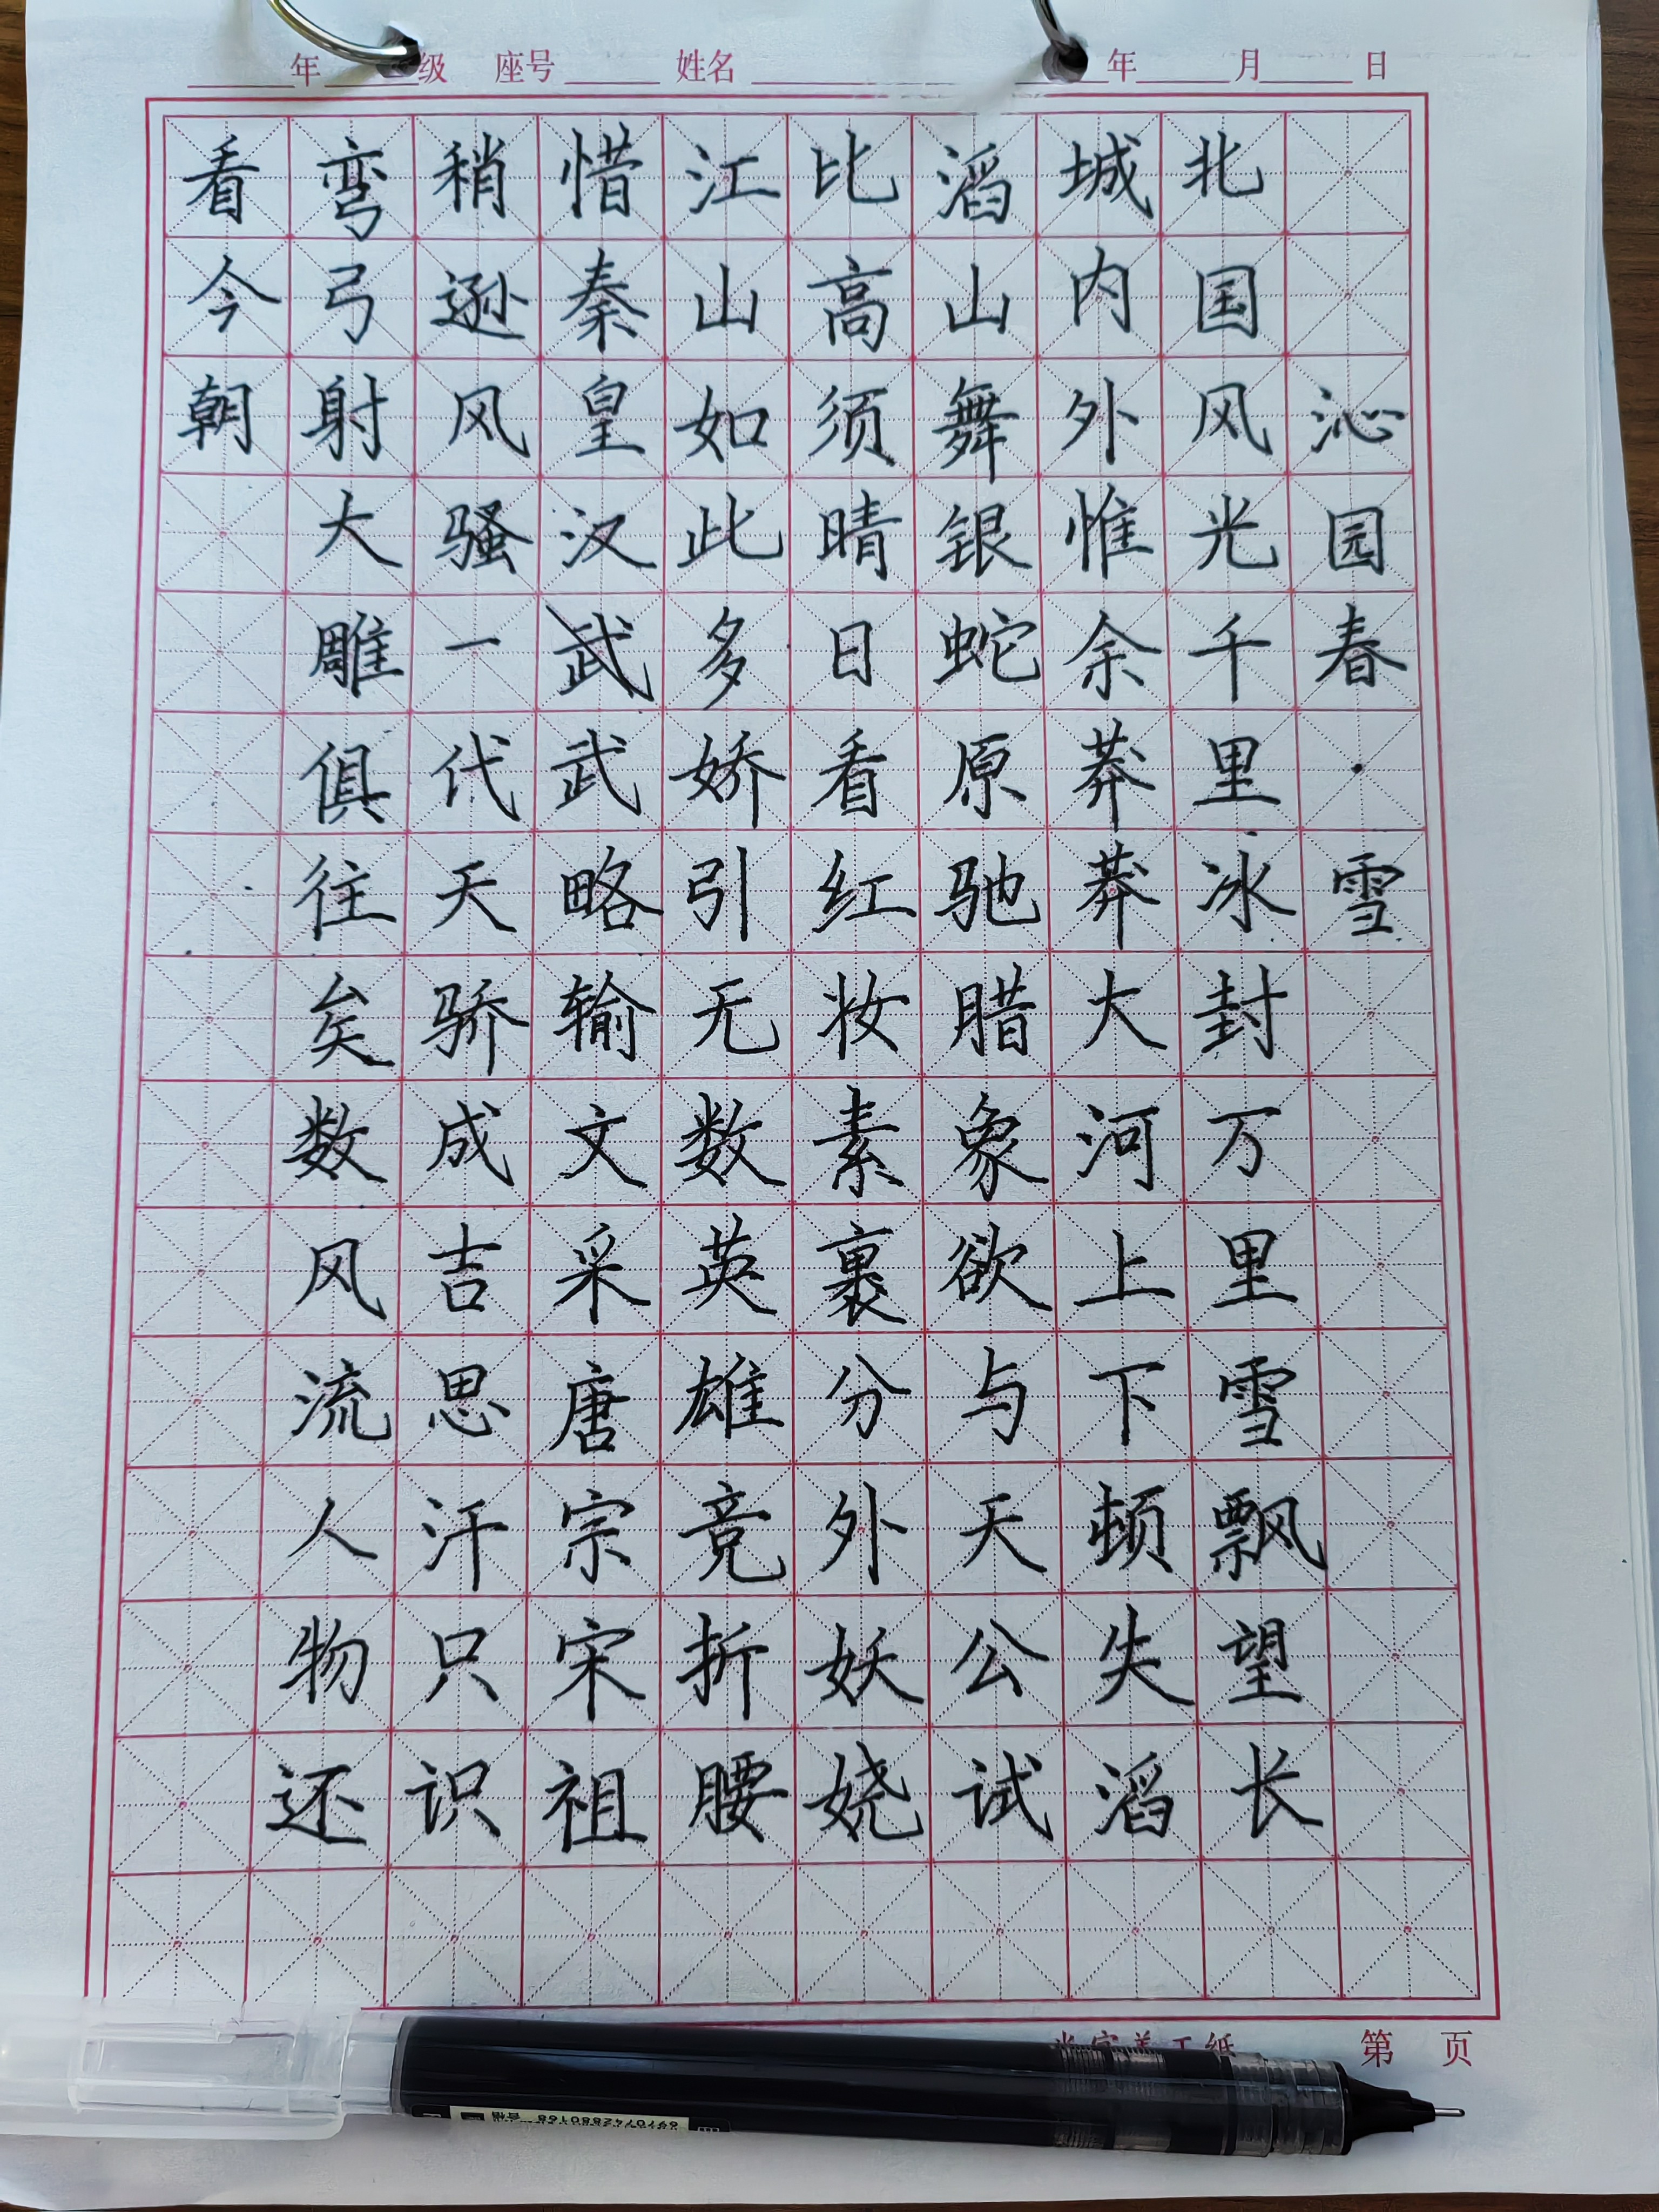 年 级 座号 姓名 年 月 日
沁园春·雪
北国风光千里冰封万里雪飘望长
城内外惟余莽莽大河上下顿失滔
滔山舞银蛇原驰腊象欲与天公试
比高须晴日看红妆素裹分外妖娆
江山如此多娇引无数英雄竞折腰
惜秦皇汉武武略输文采唐宗宋祖
稍逊风骚一代天骄成吉思汗只识
弯弓射大雕俱往矣数风流人物还
看今朝
第 页